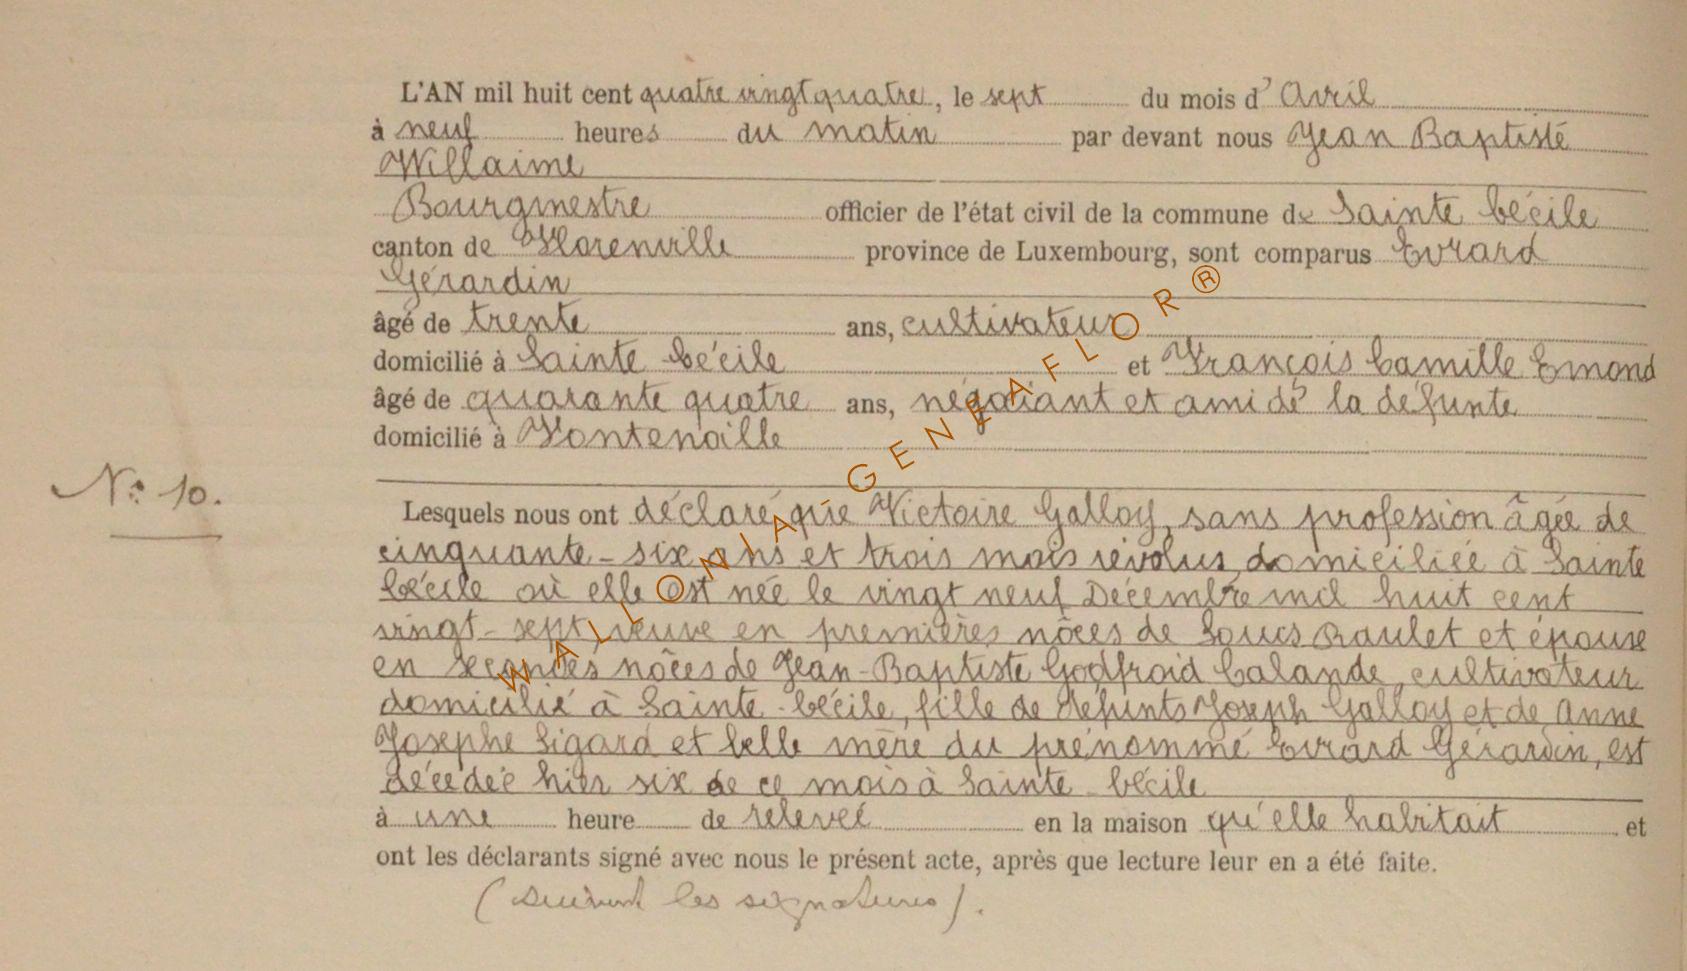 L'AN mil huit cent quatre vingt quatre, le sept du mois d' Avril
à neuf heures du matin par devant nous Jean Baptiste
Willaime
Bourgmestre officier de l'état civil de la commune de Sainte Cécile
canton de Florenville province de Luxembourg, sont comparus Evrard
Gérardin
âgé de trente ans, cultivateur
domicilié à Sainte Cécile et François Camille Emond
âgé de quarante quatre ans, négociant et ami de la défunte
domicilié à Fontenoille
Nº 10.
Lesquels nous ont déclaré que Victoire Galloy, sans profession âgée de
cinquante-six ans et trois mois révolus, domiciliée à Sainte
Cécile où elle est née le vingt neuf Décembre mil huit cent
vingt-sept, veuve en premières nôces de Louis Raulet et épouse
en secondes nôces de Jean-Baptiste Godfroid Calande, cultivateur
domicilié à Sainte-Cécile, fille de défunts Joseph Galloy et de Anne
Josephe Sigard et belle mère du prénommé Evrard Gérardin, est
décédée hier six de ce mois à Sainte-Cécile
à une heure de relevée en la maison qu'elle habitait et
ont les déclarants signé avec nous le présent acte, après que lecture leur en a été faite.
(suivent les signatures).
WALLONIA-GENEAFLOR®